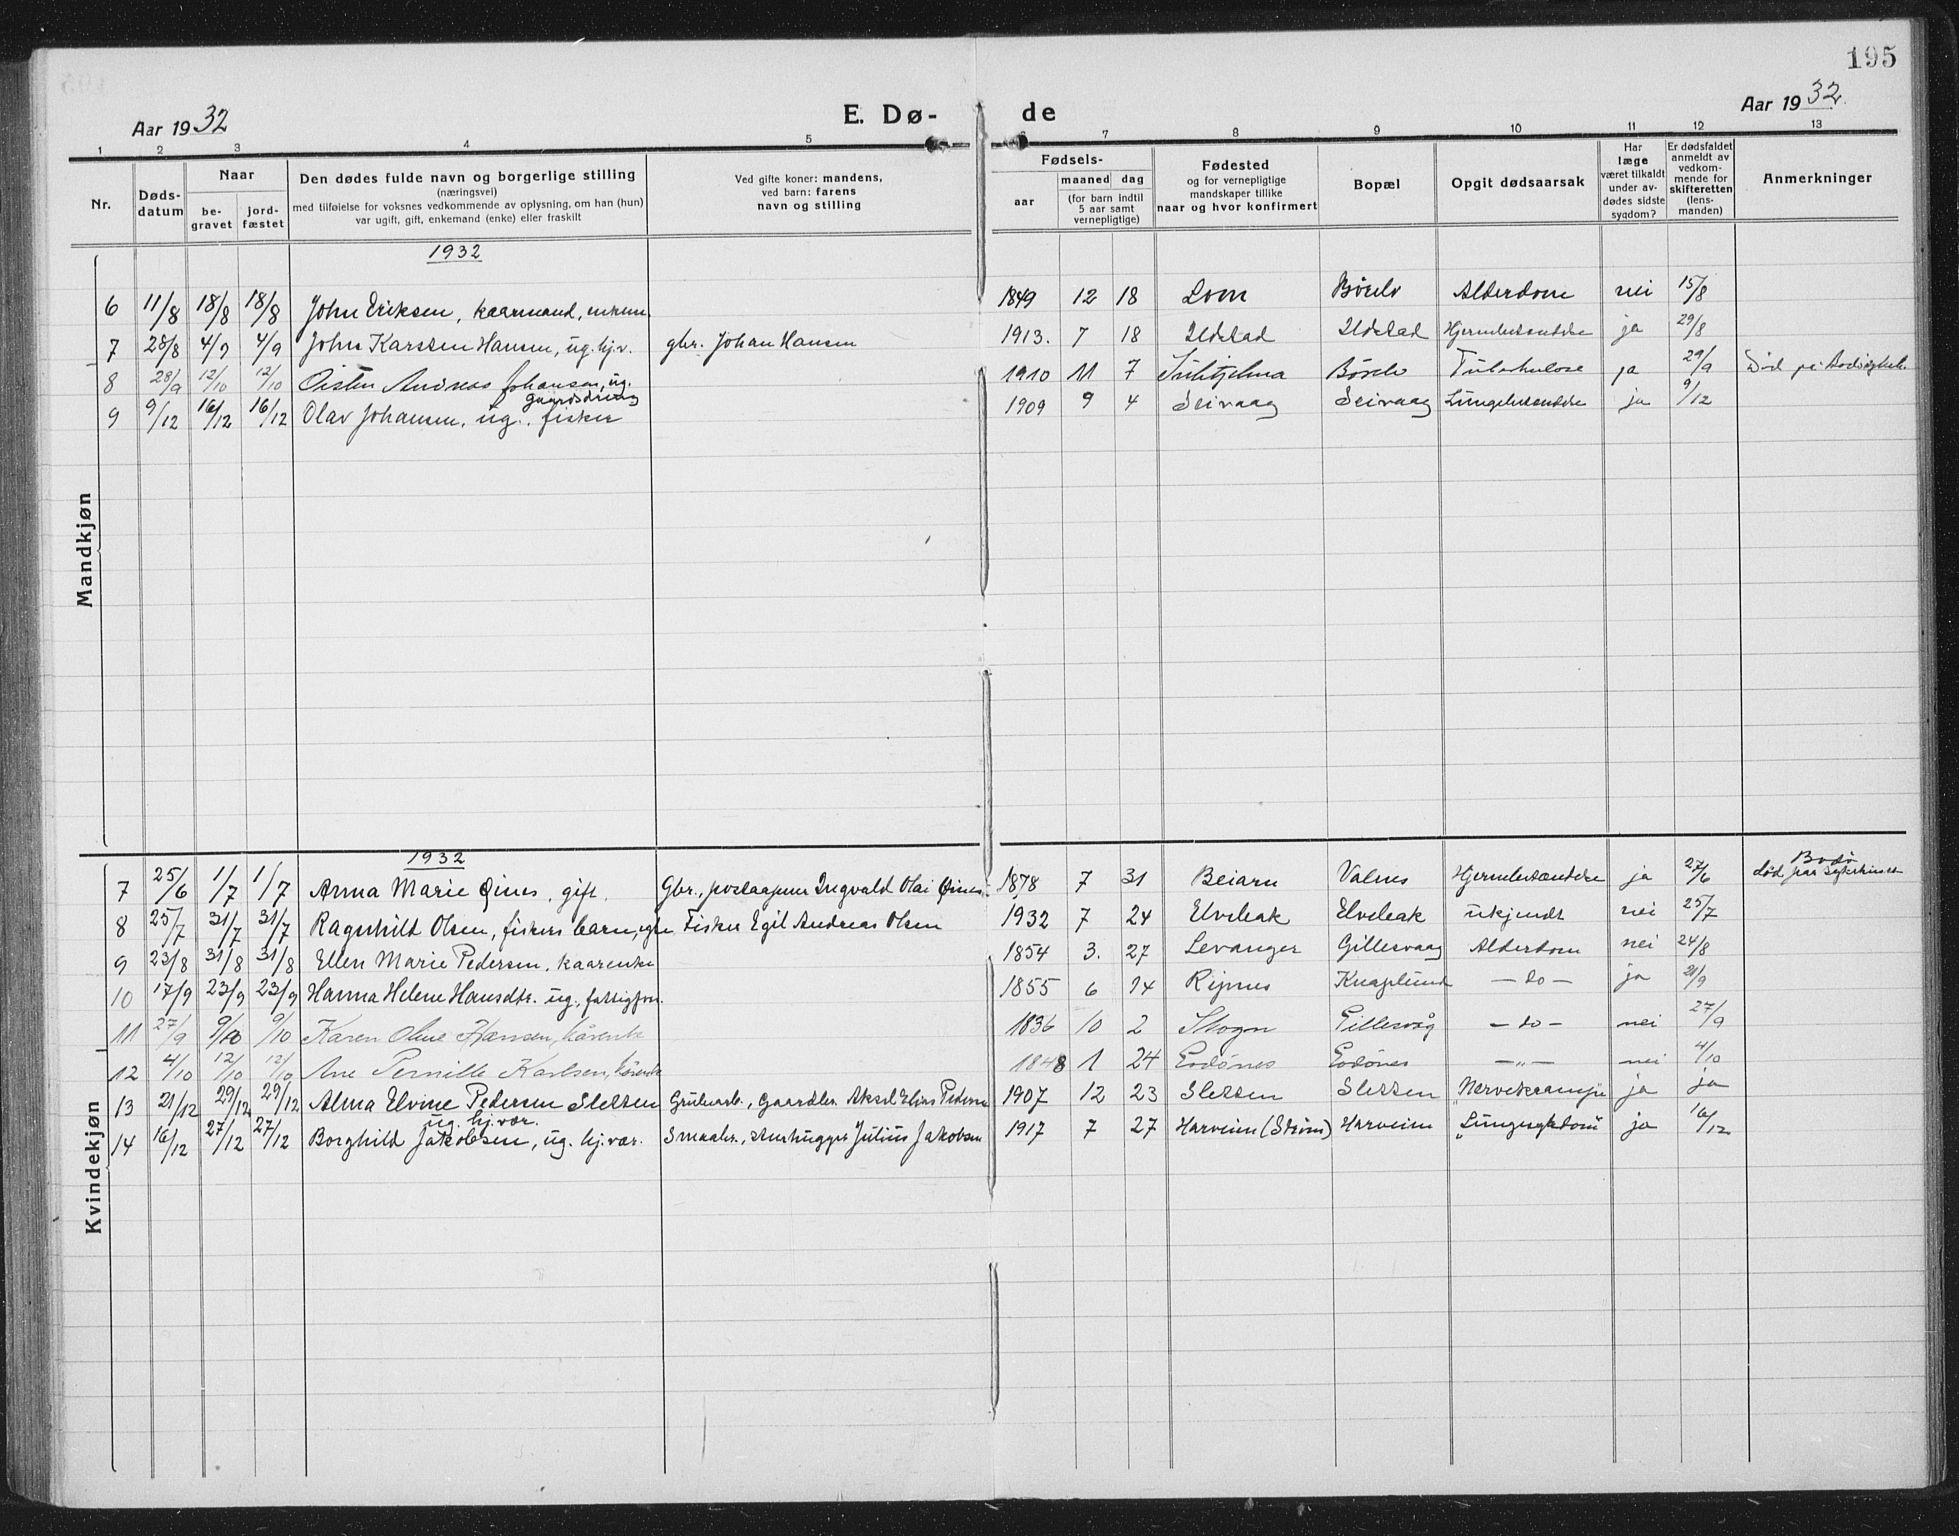 195
Aar 1932 E. Dø- de Aar 1932
1 2 3 4 5 6 7 8 9 10 11 12 13
Nr. Døds-datum Naar be-gravet jord-fæstet Den dødes fulde navn og borgerlige stilling (næringsvei) med tilføielse for voksnes vedkommende av oplysning, om han (hun) var ugift, gift, enkemand (enke) eller fraskilt Ved gifte koner: mandens, ved barn: farens navn og stilling Fødsels- aar maaned dag (for barn indtil 5 aar samt vernepligtige) Fødested og for vernepligtige mandskaper tillike naar og hvor konfirmert Bopæl Opgit dødsaarsak Har læge været tilkaldt under av-dødes sidste sygdom? Er dødsfaldet anmeldt av vedkom-mende for skifteretten (lens-manden) Anmerkninger
Mandkjøn
1932
6 11/8 18/8 18/8 John Eriksen, kaarmand, enkem. 1849 12 18 Lom Alderdom nei 15/8
7 28/8 4/9 4/9 John Karsten Hansen, ug. hj.v. gbr. Johan Hansen 1913. 7 18 Ildstad Ildstad ja 29/8
8 28/9 12/10 12/10 Øisten Andreas Johansen, ug. gaardsdreng 1910 11 7 Sulitjelma Tuberkulose ja 29/9 Død på
9 9/12 16/12 16/12 Olav Johansen, ug., fisker 1909 9 4 Seivaag Seivaag Lungebetændelse ja 9/12
Kvindekjøn
1932
7 25/6 1/7 1/7 Anna Marie Øines, gift. Gbr., postaapner Ingvald Olai Øines 1878 7 31 Beiarn Valnes ja 27/6 Død paa Bodø sykehuset
8 25/7 31/7 31/7 Ragnhild Olsen, fiskers barn, egte Fisker Egil Andreas Olsen 1932 7 24 Elvebak Elvebak ukjendt nei 25/7
9 23/8 31/8 31/8 Ellen Marie Pedersen, kaarenke 1854 3. 27 Levanger Gillesvaag Alderdom nei 24/8
10 17/9 23/9 23/9 Hanna Helene Hansdtr. ug., fattigfors. 1855 6 14 Ripnes Knaplund — do — ja 21/9
11 27/9 9/10 9/10 Karen Oline Hansen, kårenke 1836 10 2 Skogn Gillesvåg — do — nei 27/9
12 4/10 12/10 12/10 Ane Pernille Karlsen, kårenke 1848 1 24 Evdønes Evdønes — „ — nei 4/10
13 21/12 29/12 29/12 Alma Elvine Pedersen Sletten ug. hj.vær. Grubearb., gaardbr. Aksel Elias Pedersen 1907 12 23 Sletten Sletten Nervekrampe ja ja
14 16/12 27/12 27/12 Borghild Jakobsen, ug. hj.vær. Smaabr., stenhugger Julius Jakobsen 1917 7 27 Harveien (Strøm) Harveien „Lungesykdom" ja 16/12